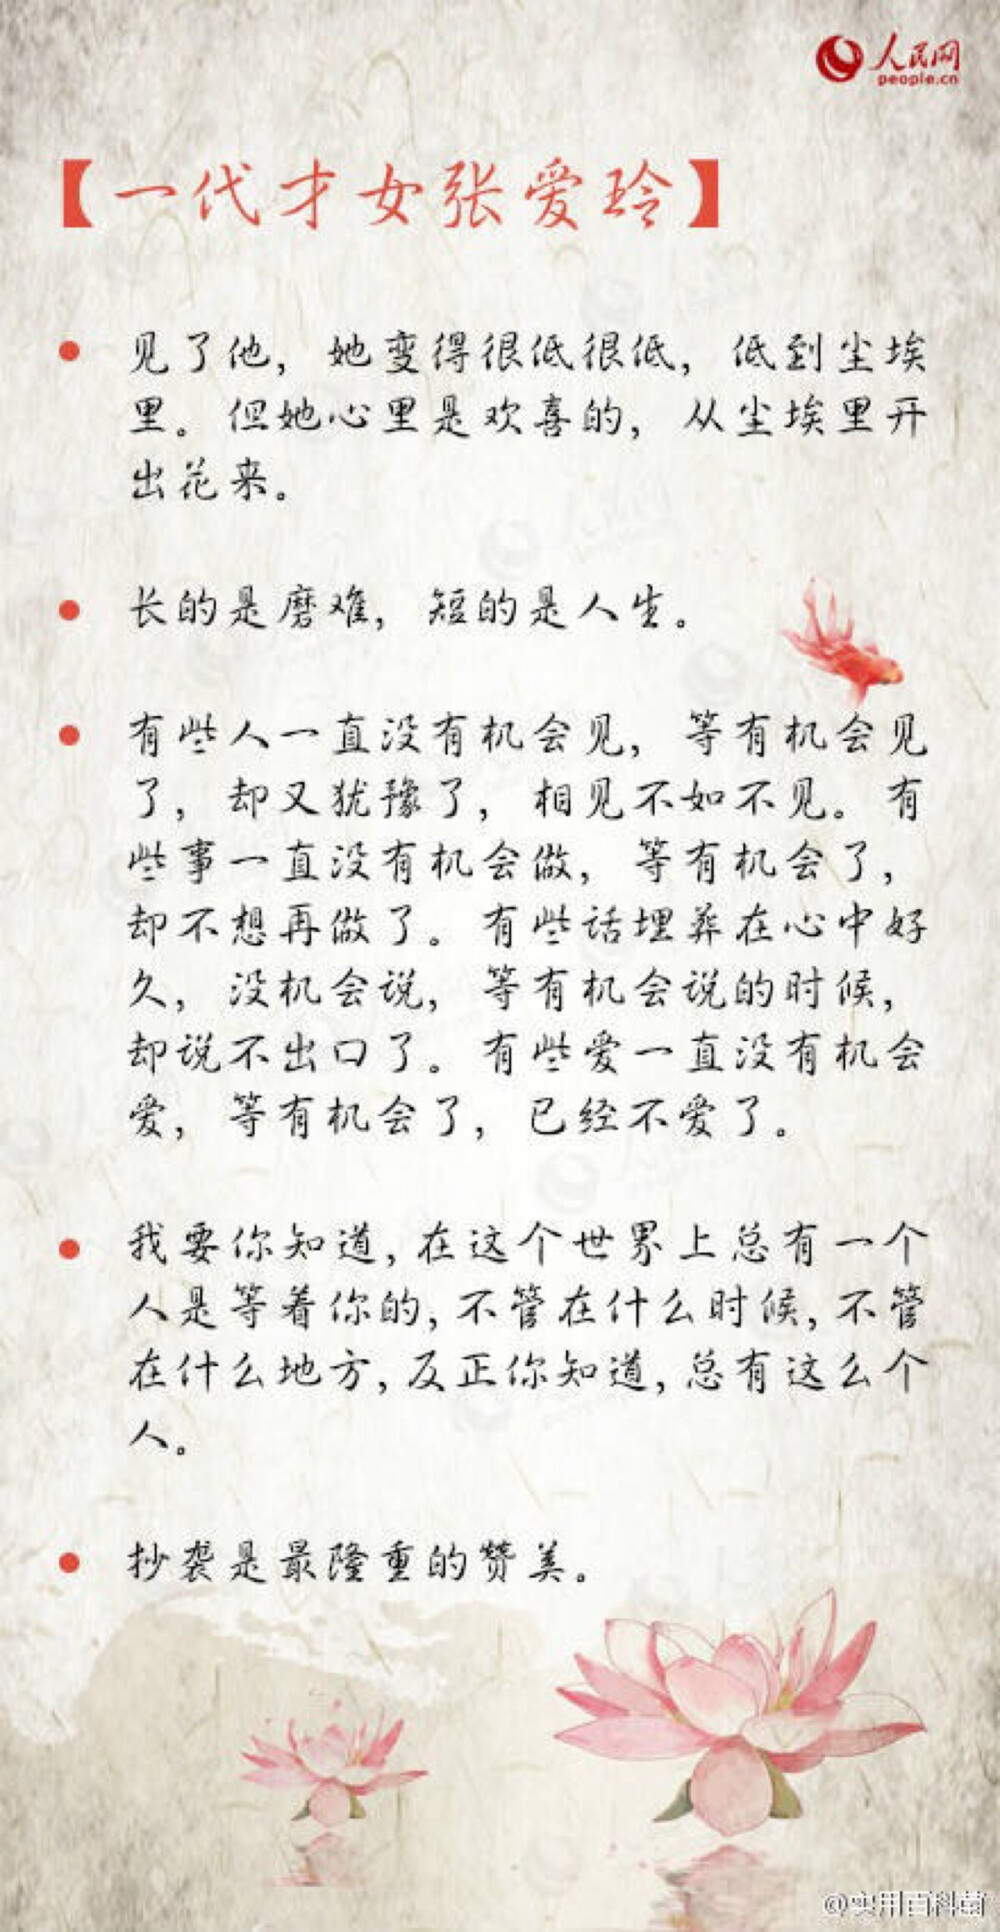 人民网
people.cn
【一代才女张爱玲】
见了他，她变得很低很低，低到尘埃
里。但她心里是欢喜的，从尘埃里开
出花来。
长的是磨难，短的是人生。
有些人一直没有机会见，等有机会见
了，却又犹豫了，相见不如不见。有
些事一直没有机会做，等有机会了，
却不想再做了。有些话埋葬在心中好
久，没机会说，等有机会说的时候，
却说不出口了。有些爱一直没有机会
爱，等有机会了，已经不爱了。
我要你知道,在这个世界上总有一个
人是等着你的,不管在什么时候,不管
在什么地方,反正你知道,总有这么个
人。
抄袭是最隆重的赞美。
@实用百科菌